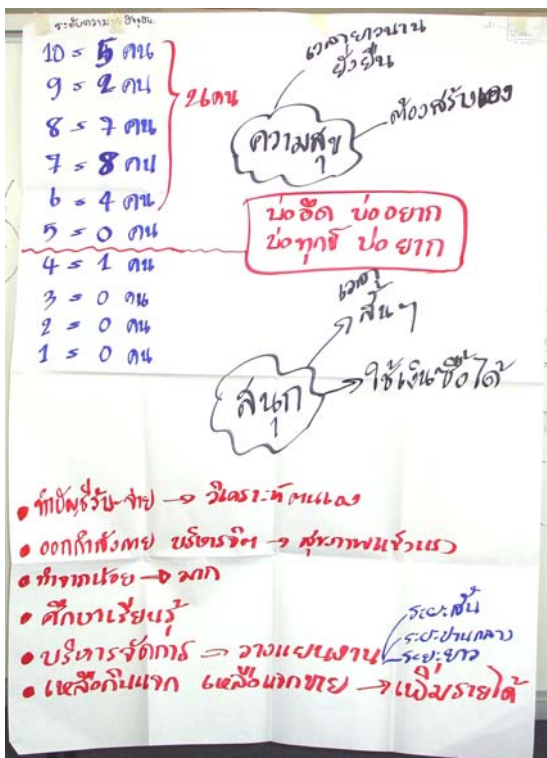 ระดับความสุข ปัจจุบัน
10 = 5 คน
9 = 2 คน
8 = 7 คน
7 = 8 คน
6 = 4 คน
5 = 0 คน
4 = 1 คน
3 = 0 คน
2 = 0 คน
1 = 0 คน
เวลายาวนาน
ยั่งยืน
ความสุข
ต้องสร้างเอง
บ่อึด บ่อยาก
บ่ทุกข์ บ่ยาก
เวลา
สั้นๆ
สนุก
ใช้เงินซื้อได้
• ทำบัญชีรับ-จ่าย → วิเคราะห์ตนเอง
• ออกกำลังกาย บริหารจิต → สุขภาพแข็งแรง
• ทำจากน้อย → มาก
• ศึกษาเรียนรู้
• บริหารจัดการ → วางแผนงาน
ระยะสั้น
ระยะปานกลาง
ระยะยาว
• เหลือกินแจก เหลือแจกขาย → เพิ่มรายได้